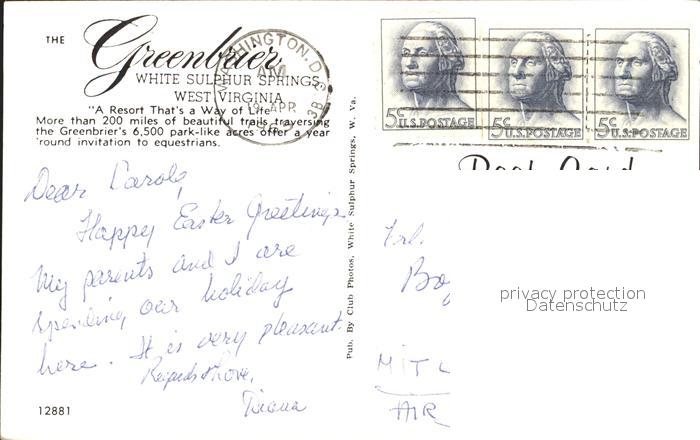 THE
Greenbrier
WHITE SULPHUR SPRINGS
WEST VIRGINIA
"A Resort That's a Way of Life"
More than 200 miles of beautiful trails traversing
the Greenbrier's 6,500 park-like acres offer a year
'round invitation to equestrians.
WASHINGTON, D.C.
AM
APR
5c U.S.POSTAGE
5c U.S.POSTAGE
5c U.S.POSTAGE
Post Card
Dear Carole,
Happy Easter Greetings
My parents and I are
spending our holiday
here. It is very pleasant.
Regards & love,
12881
Pub. By Club Photos, White Sulphur Springs, W. Va.
Frl.
privacy protection
Datenschutz
AIR